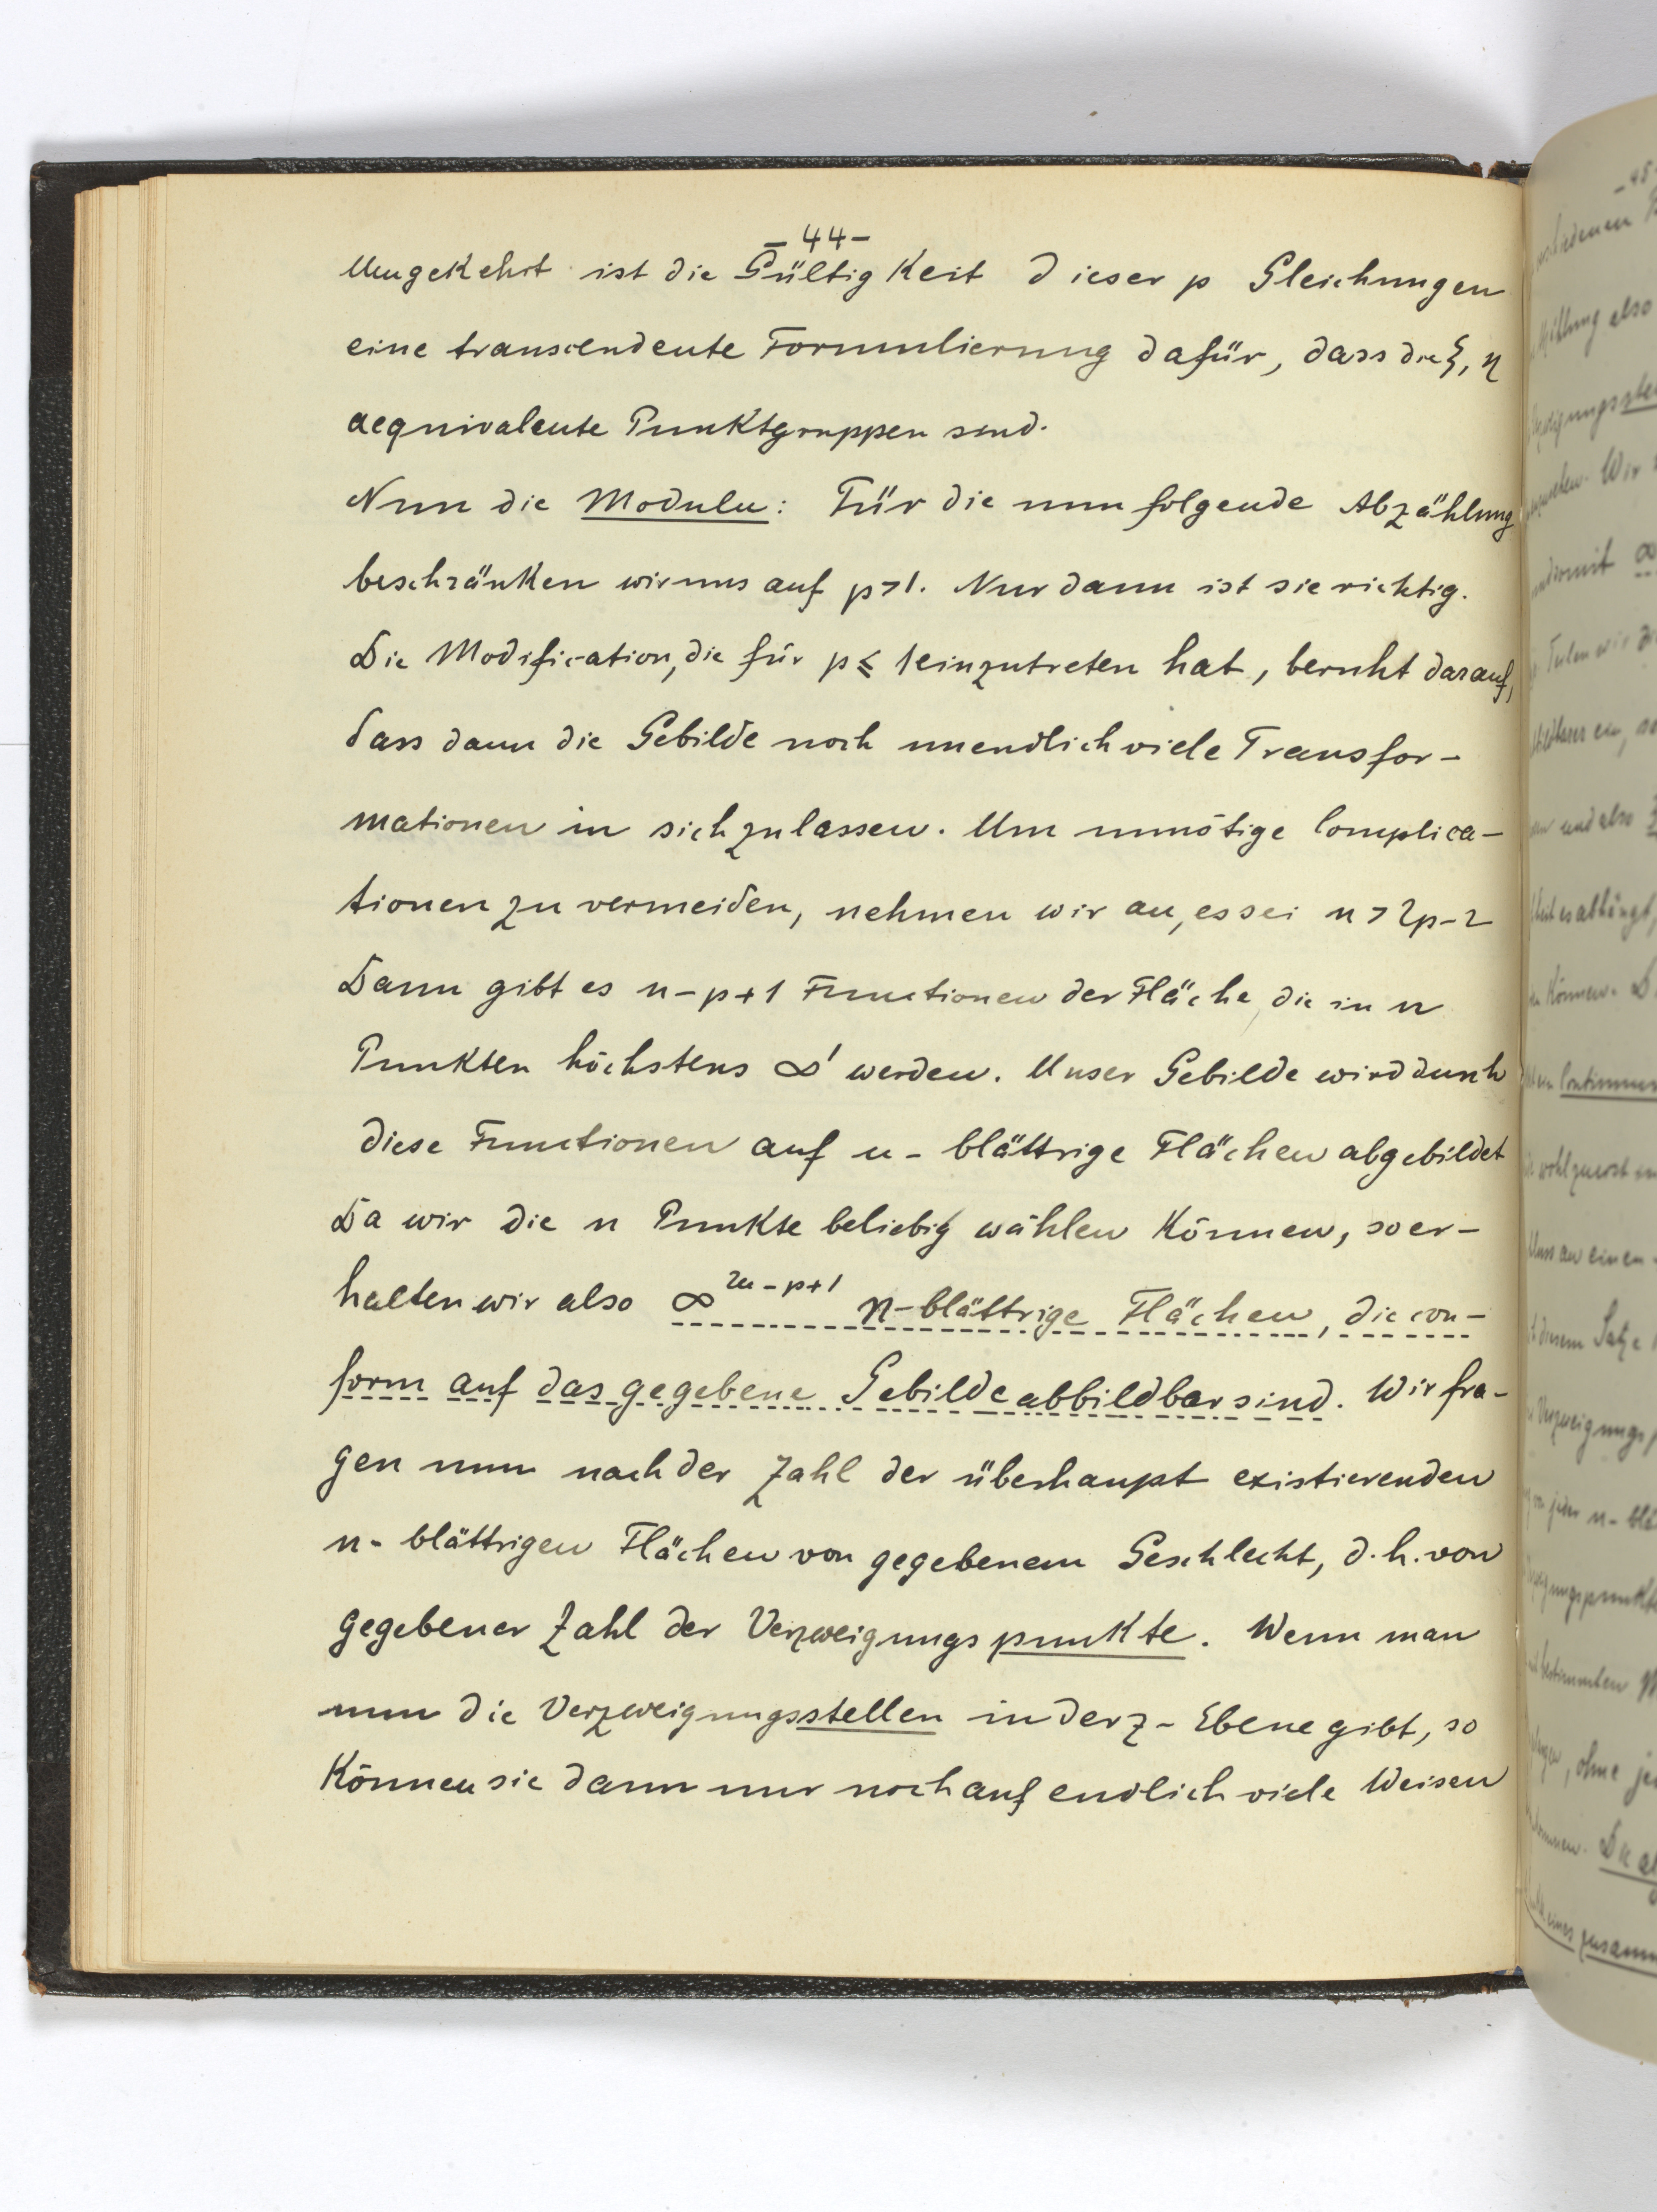 - 44 -
Umgekehrt ist die Gültigkeit dieser p Gleichungen
eine transcendente Formulierung dafür, dass die ξ, η
aequivalente Punktgruppen sind.
Nun die Moduln: Für die nun folgende Abzählung
beschränken wir uns auf p > 1. Nur dann ist sie richtig.
Die Modification, die für p ≤ 1 einzutreten hat, beruht darauf,
dass dann die Gebilde noch unendlich viele Transfor-
mationen in sich zulassen. Um unnötige Complica-
tionen zu vermeiden, nehmen wir an, es sei n > 2p-2
Dann gibt es n-p+1 Functionen der Fläche, die in n
Punkten höchstens ∞¹ werden. Unser Gebilde wird durch
diese Functionen auf n-blättrige Flächen abgebildet
Da wir die n Punkte beliebig wählen können, so er-
halten wir also ∞²ⁿ⁻ᵖ⁺¹ n-blättrige Flächen, die con-
form auf das gegebene Gebilde abbildbar sind. Wir fra-
gen nun nach der Zahl der überhaupt existierenden
n-blättrigen Flächen von gegebenem Geschlecht, d.h. von
gegebener Zahl der Verzweigungspunkte. Wenn man
nun die Verzweigungsstellen in der z-Ebene gibt, so
können sie dann nur noch auf endlich viele Weisen